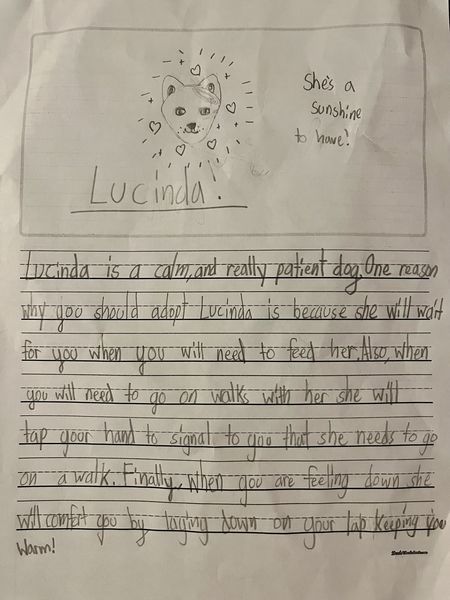 She's a
sunshine
to have!
Lucinda!
Lucinda is a calm, and really patient dog. One reason
why you should adopt Lucinda is because she will wait
for you when you will need to feed her. Also, when
you will need to go on walks with her she will
tap your hand to signal to you that she needs to go
on a walk. Finally, when you are feeling down she
will comfert you by laging down on your lap keeping you
warm!